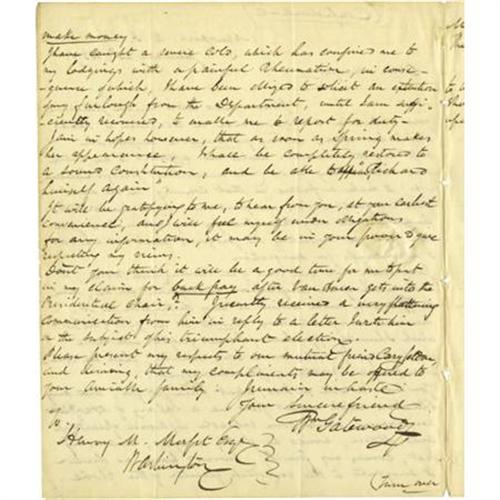 make money
I have caught a severe cold, which has confined me to
my lodgings with a painful rheumatism, in conse-
quence of which, I have been obliged to solicit an extention
of my furlough from the Department, until I am suffi-
ciently recovered, to enable me to report for duty-
I am in hopes however, that as soon as Spring makes
her appearance, I shall be completely restored to
a sound constitution, and be able to Richard
himself again"
It will be gratifying to me, to hear from you, at your earliest
convenience, and I will feel myself under obligations
for any information, it may be in your power to give
respecting my views.
Don't you think it will be a good time for me to put
in my claim for back pay after Van Buren gets into the
Presidential Chair? I recently received a very flattering
communication from him in reply to a letter I write him
on the subject of his triumphant election.
Please present my respects to our mutual friend
and desiring, that my compliments may be offered to
your amiable family. I remain in haste
Your sincere friend
Wm Gatewood
To
Henry M. Esqr
Washington
(Turn over